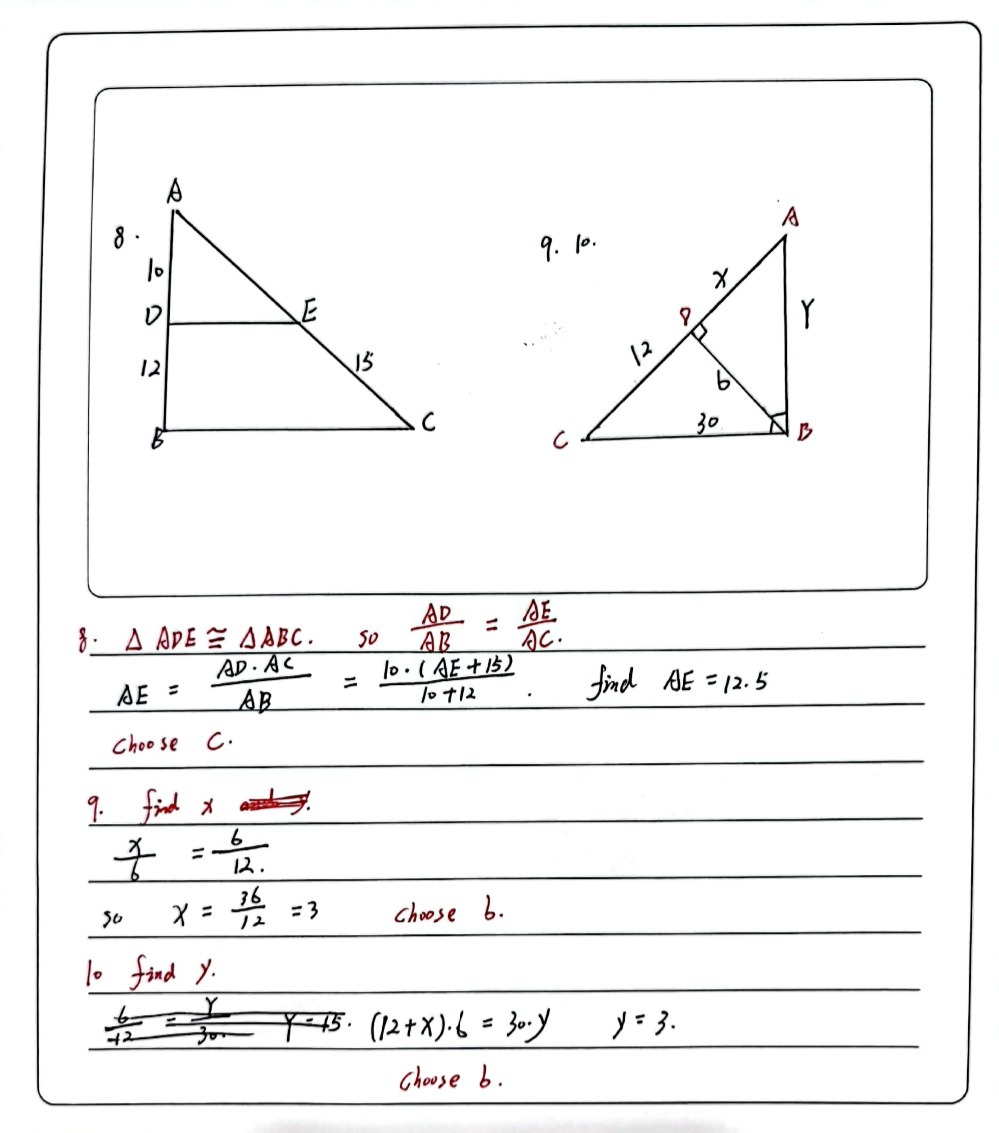 A
8.
10
D
E
12
15
B
C
9. 10.
A
x
D
Y
12
6
30
C
B
8. △ ADE ≅ △ABC. so AD/AB = AE/AC.
AE = AD·AC/AB = 10·(AE+15)/10+12. find AE = 12.5
Choose C.
9. find x
x/6 = 6/12.
so x = 36/12 = 3 Choose b.
10 find y.
6/12 = Y/30. Y = 15. (12+x)·6 = 30·y y = 3.
Choose b.